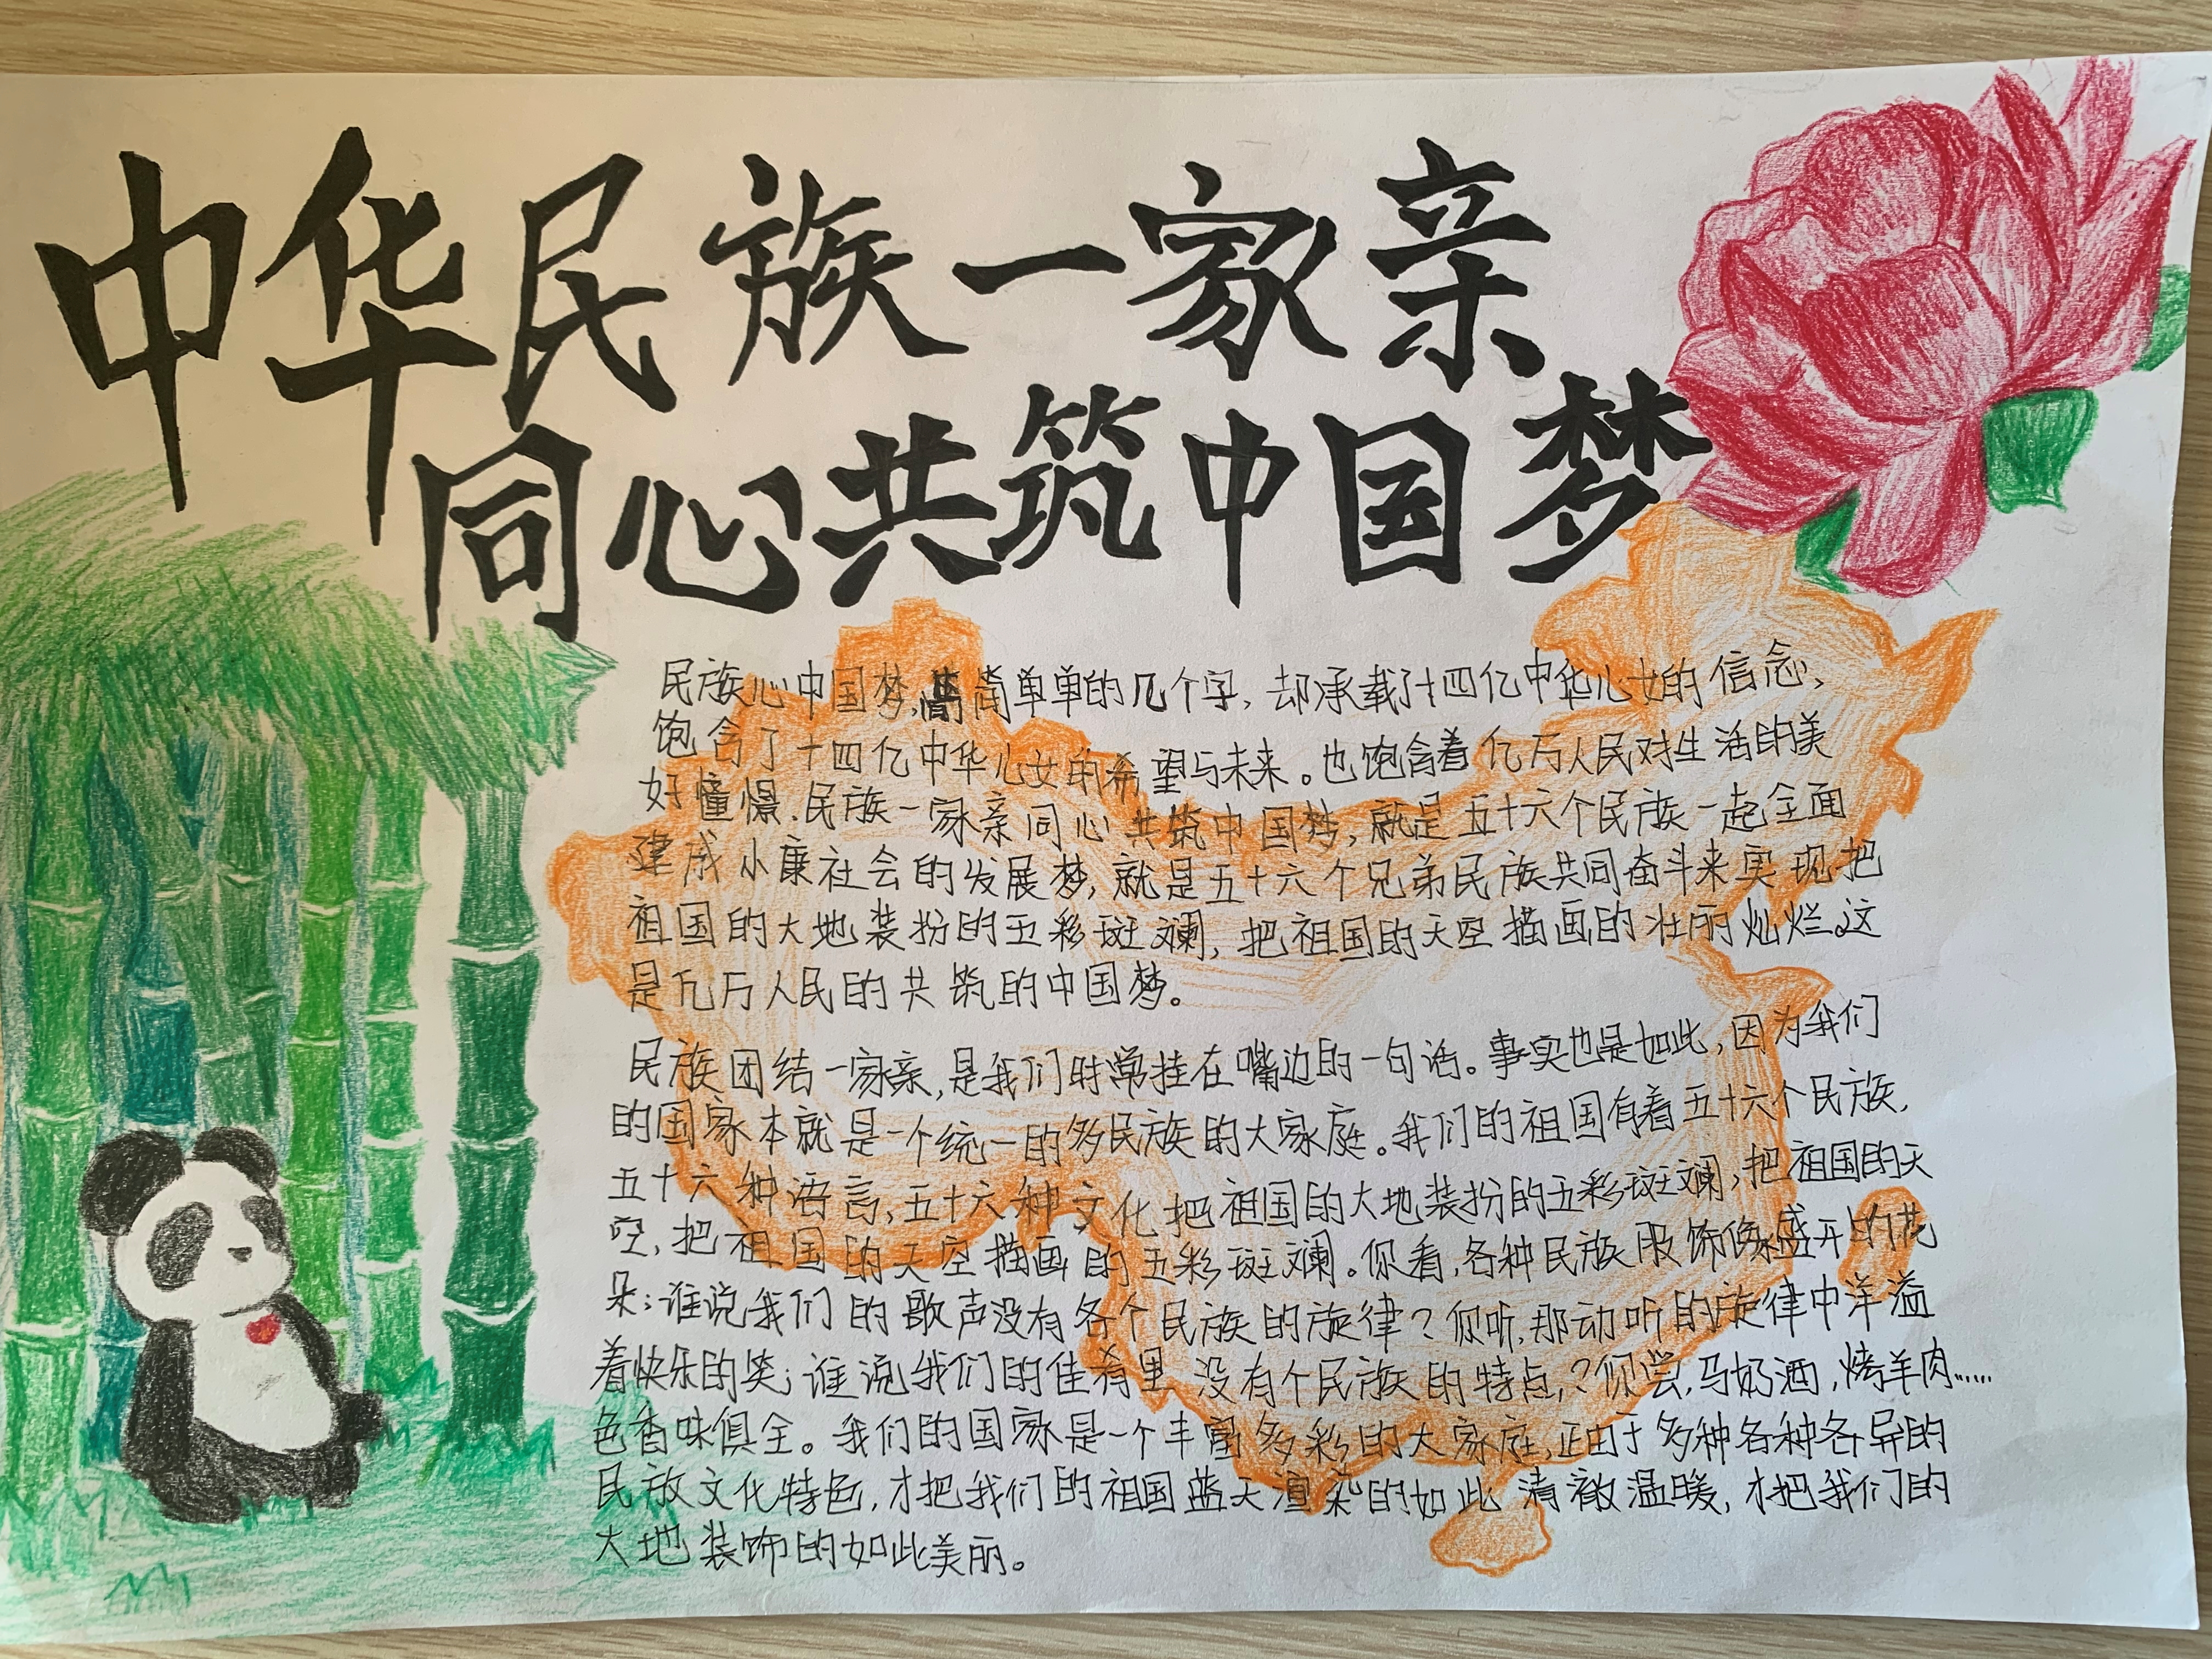 中华民族一家亲
同心共筑中国梦
民族心中国梦,简简单单的几个字,却承载了十四亿中华儿女的信念、
饱含了十四亿中华儿女的希望与未来。也饱含着亿万人民对生活的美
好憧憬.民族一家亲同心共筑中国梦,就是五十六个民族一起全面
建成小康社会的发展梦,就是五十六个兄弟民族共同奋斗来实现把
祖国的大地装扮的五彩斑斓,把祖国的天空描画的壮丽灿烂.这
是亿万人民的共筑的中国梦。
民族团结一家亲,是我们时常挂在嘴边的一句话。事实也是如此,因为我们
的国家本就是一个统一的多民族的大家庭。我们的祖国有着五十六个民族,
五十六种语言,五十六种文化把祖国的大地装扮的五彩斑斓,把祖国的天
空,把祖国的天空描画的五彩斑斓。你看,各种民族服饰像盛开的花
朵;谁说我们的歌声没有各个民族的旋律?你听,那动听的旋律中洋溢
着快乐的笑;谁说我们的佳肴里没有个民族的特点,?你尝,马奶酒,烤羊肉……
色香味俱全。我们的国家是一个丰富多彩的大家庭,正由于多种各种各异的
民族文化特色,才把我们的祖国蓝天渲染的如此清澈温暖,才把我们的
大地装饰的如此美丽。